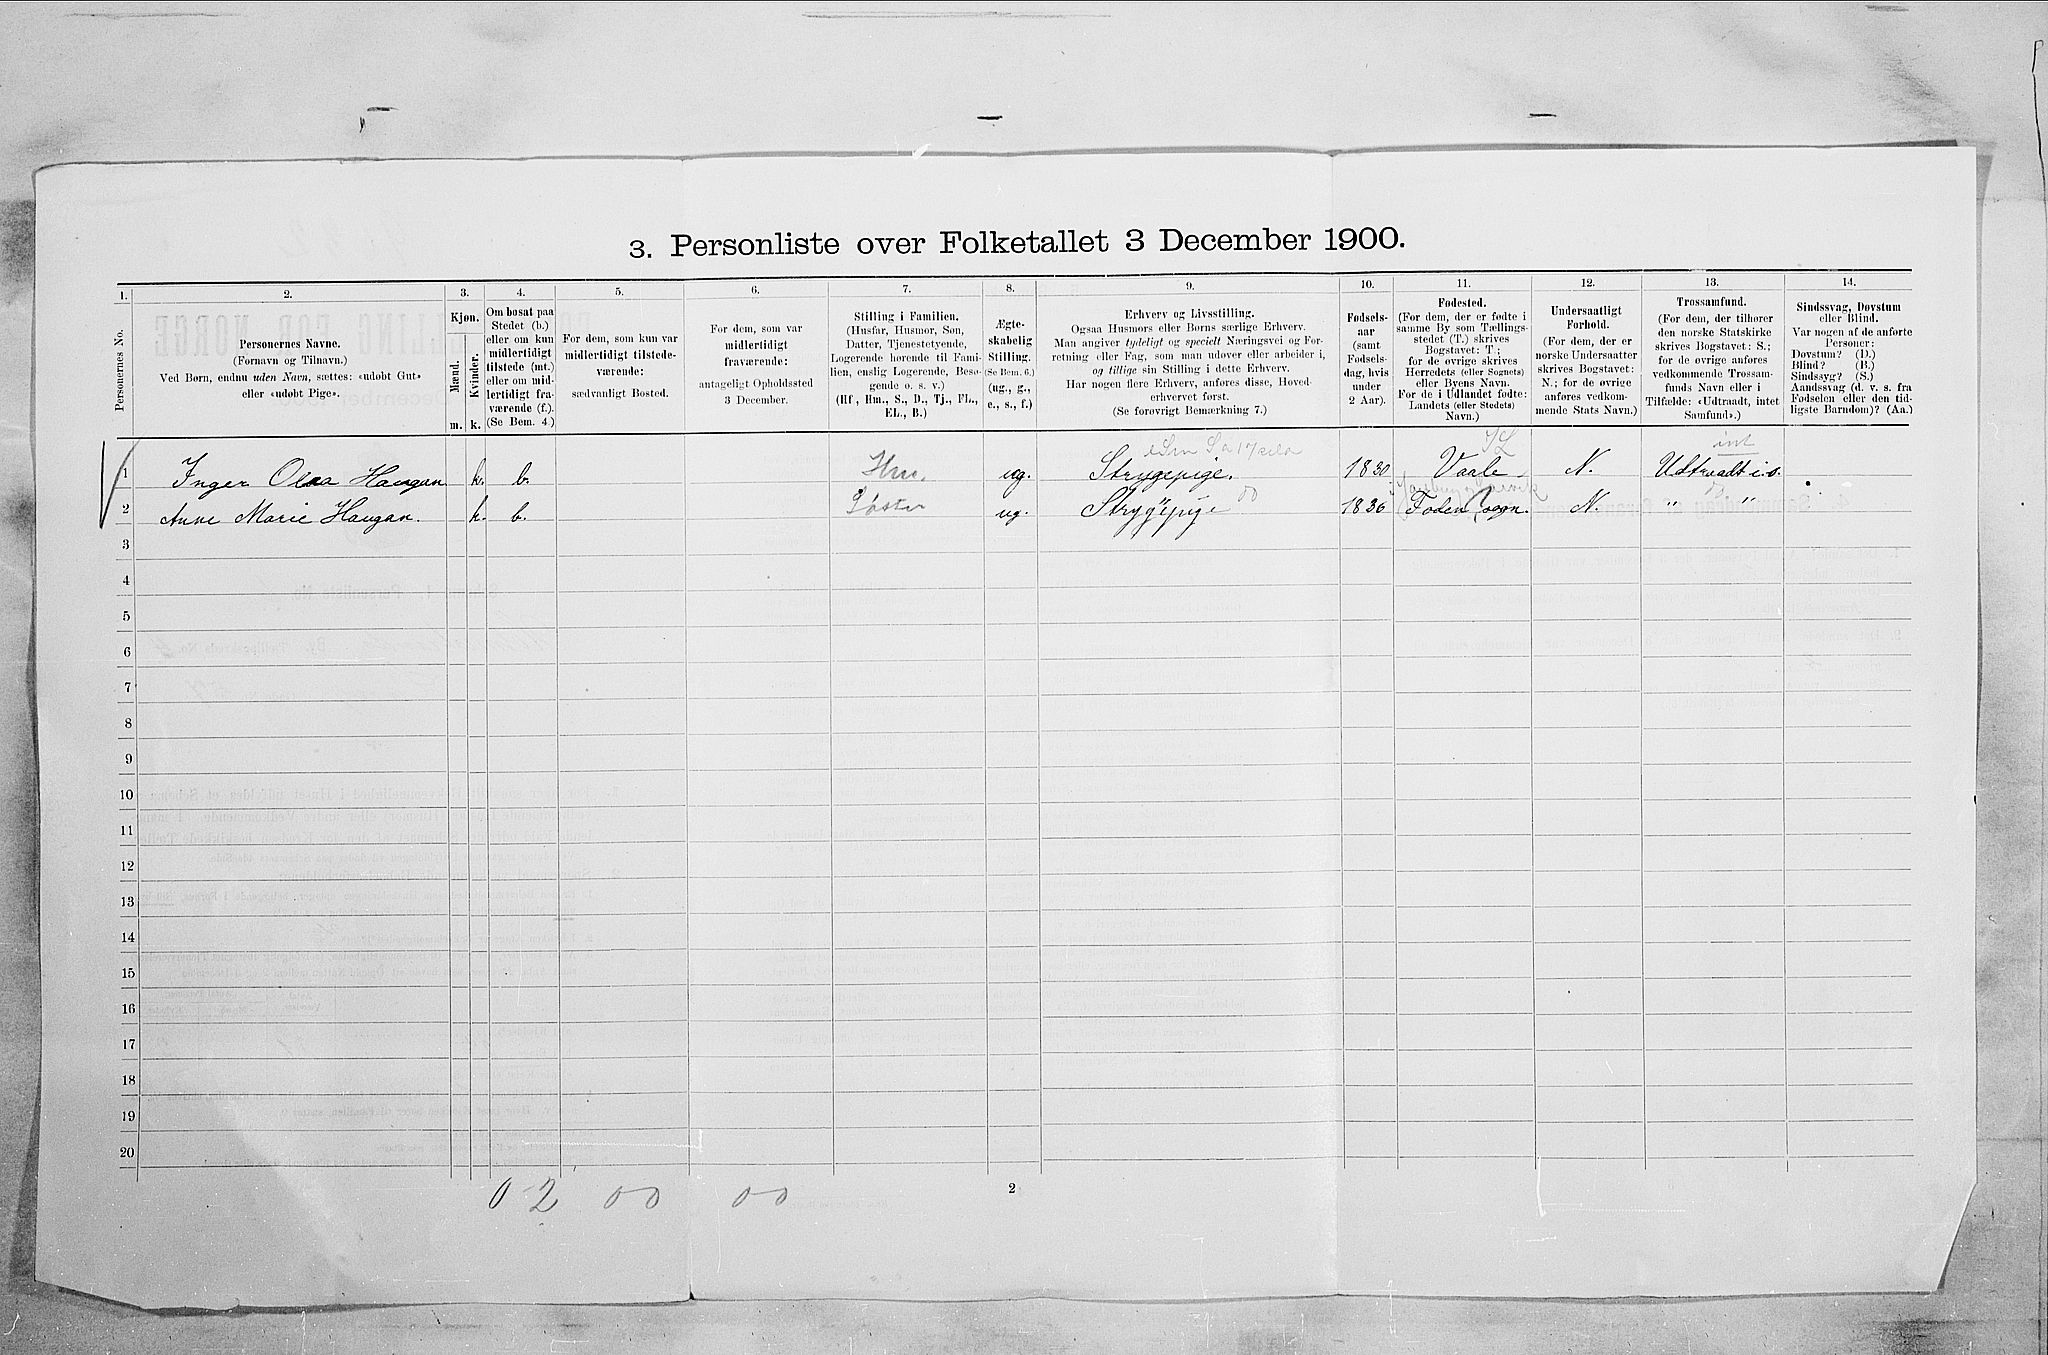 3. Personliste over Folketallet 3 December 1900.
1. 2. 3. 4. 5. 6. 7. 8. 9. 10. 11. 12. 13. 14.
Personernes No.
Personernes Navne.
(Fornavn og Tilnavn.)
Ved Børn, endnu uden Navn, sættes: «udøbt Gut»
eller «udøbt Pige».
Kjøn.
Mænd.
Kvinder.
m. k.
Om bosat paa
Stedet (b.)
eller om kun
midlertidigt
tilstede (mt.)
eller om mid-
lertidigt fra-
værende (f.).
(Se Bem. 4.)
For dem, som kun var
midlertidigt tilstede-
værende:
sædvanligt Bosted.
For dem, som var
midlertidigt
fraværende:
antageligt Opholdssted
3 December.
Stilling i Familien.
(Husfar, Husmor, Søn,
Datter, Tjenestetyende,
Logerende hørende til Fami-
lien, enslig Logerende, Besø-
gende o. s. v.)
(Hf, Hm., S., D., Tj., FL.,
EL., B.)
Ægte-
skabelig
Stilling.
(Se Bem. 6.)
(ug., g.,
e., s., f.)
Erhverv og Livsstilling.
Ogsaa Husmors eller Børns særlige Erhverv.
Man angiver tydeligt og specielt Næringsvei og For-
retning eller Fag, som man udover eller arbeider i,
og tillige sin Stilling i dette Erhverv.
Har nogen flere Erhverv, anføres disse, Hoved-
erhvervet først.
(Se forøvrigt Bemærkning 7.)
Fødsels-
aar
(samt
Fødsels-
dag, hvis
under
2 Aar).
Fødested.
(For dem, der er fødte i
samme By som Tællings-
stedet (T.) skrives
Bogstavet: T.;
for de øvrige skrives
Herredets (eller Sognets)
eller Byens Navn.
For de i Udlandet fødte:
Landets (eller Stedets)
Navn.)
Undersaatligt
Forhold.
(For dem, der er
norske Undersaatter
skrives Bogstavet:
N.; for de øvrige
anføres vedkom-
mende Stats Navn.)
Trossamfund.
(For dem, der tilhører
den norske Statskirke
skrives Bogstavet: S.;
for de øvrige anføres
vedkommende Trossam-
funds Navn eller i
Tilfælde: «Udtraadt, intet
Samfund».)
Sindssvag, Døvstum
eller Blind.
Var nogen af de anførte
Personer:
Døvstum? (D.)
Blind? (B.)
Sindssyg? (S.)
Aandssvag (d. v. s. fra
Fødselen eller den tid-
ligste Barndom)? (Aa.)
int
1 Inger Olea Haugan k. b. Hm. ug. Strygepige. 1830 Vaale N. Udtraadt i.s.
00
2 Anne Marie Haugan. k. b. Søster ug. Strygepige 1836 Foden sogn. N. " "
3
4
5
6
7
8
9
10
11
12
13
14
15
16
17
18
19
20
0 2 00 00
2